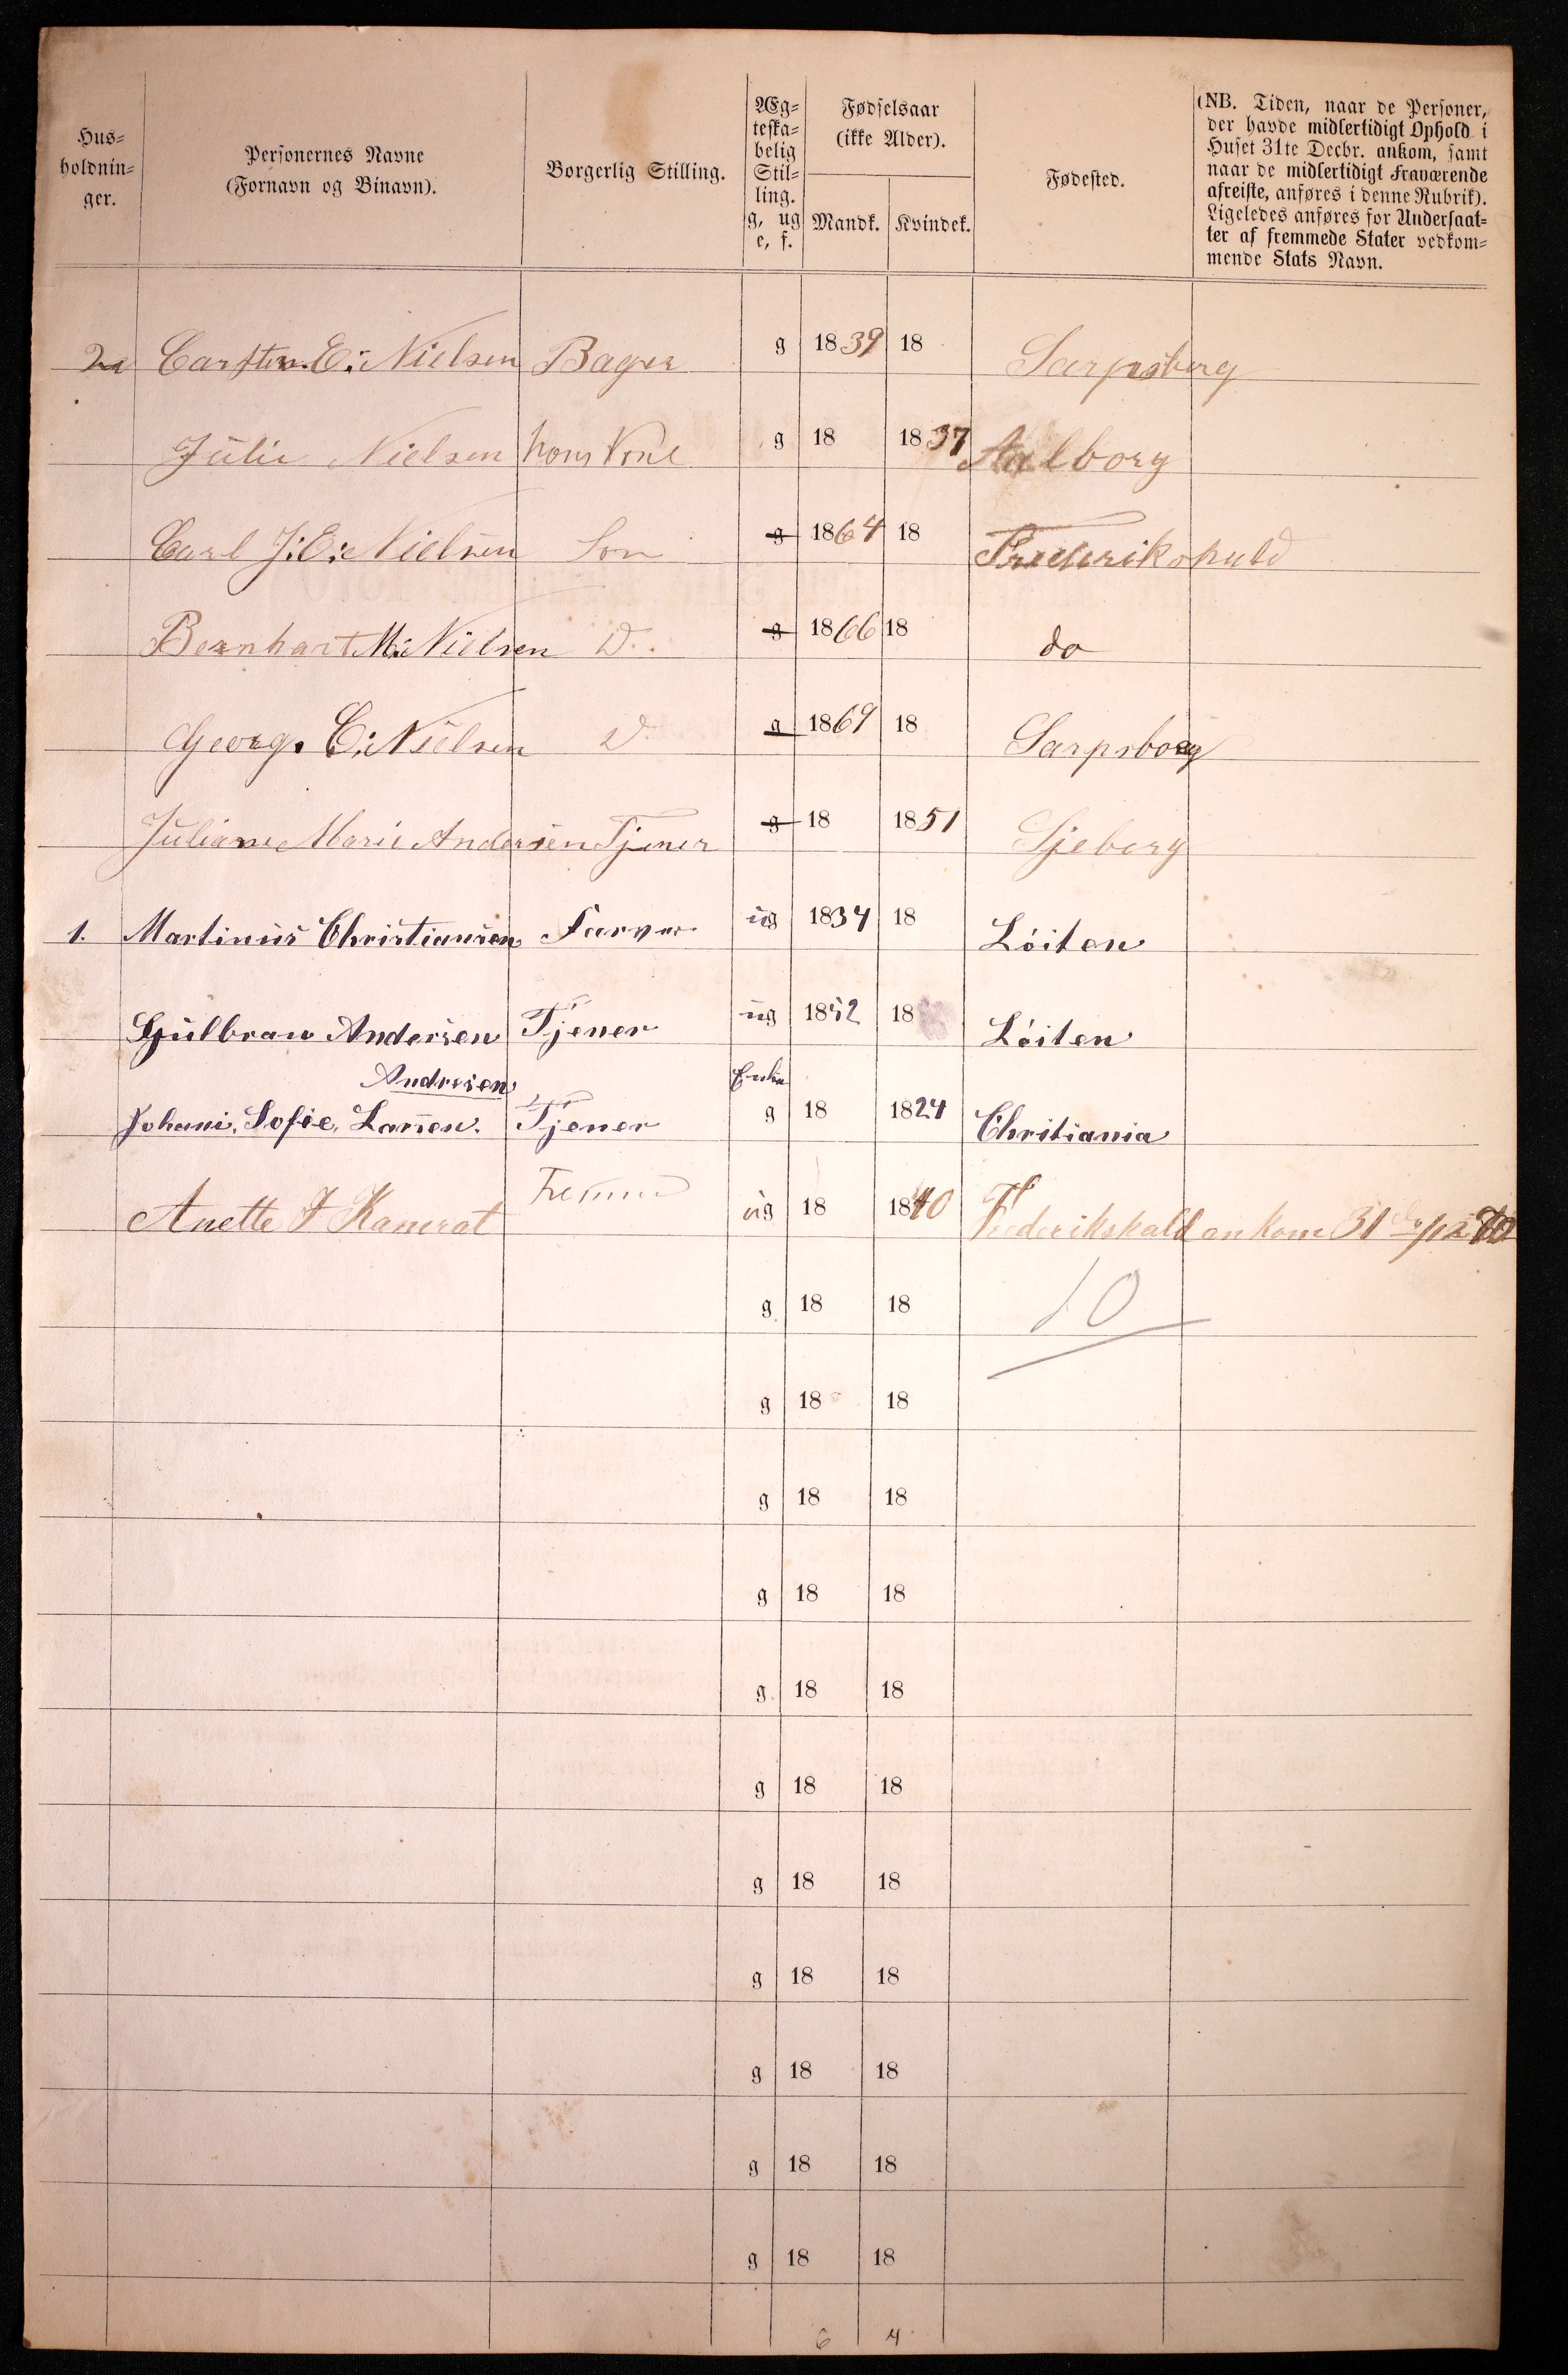 Hus=
holdnin=
ger.
Personernes Navne
(Fornavn og Binavn).
Borgerlig Stilling.
Æg=
teska=
belig
Stil=
ling.
g, ug
e, f.
Fødselsaar
(ikke Alder).
Mandk. Kvindek.
Fødested.
(NB. Tiden, naar de Personer,
der havde midlertidigt Ophold i
Huset 31te Decbr. ankom, samt
naar de midlertidigt Fraværende
afreiste, anføres i denne Rubrik).
Ligeledes anføres for Undersaat=
ter af fremmede Stater vedkom=
mende Stats Navn.
Carsten E: Nielsen Bager g 1839 18 Sarpsborg
Julie Nielsen hans Kone g 18 1837 Aalborg
Carl J: E: Nielsen Søn g 1864 18 Frederikshald
Bernhart M: Nielsen D. g 1866 18 do
Georg. C: Nielsen D g 1869 18 Sarpsborg
Juliane Marie Andersen Tjener g 18 1851 Sjeberg
1. Martinus Christiansen Farver ug 1834 18 Löiten
Gulbran Andersen Tjener ug 1852 18 Löiten
Andresen Enke
Johani. Sofie. Larsen. Tjener g 18 1824 Chritiania
Anette J Kamerat ug 18 1840 Frederikshald ankom 31 /12 70
g 18 18 10
g 18 18
g 18 18
g 18 18
g 18 18
g 18 18
g 18 18
g 18 18
g 18 18
g 18 18
g 18 18
6 4